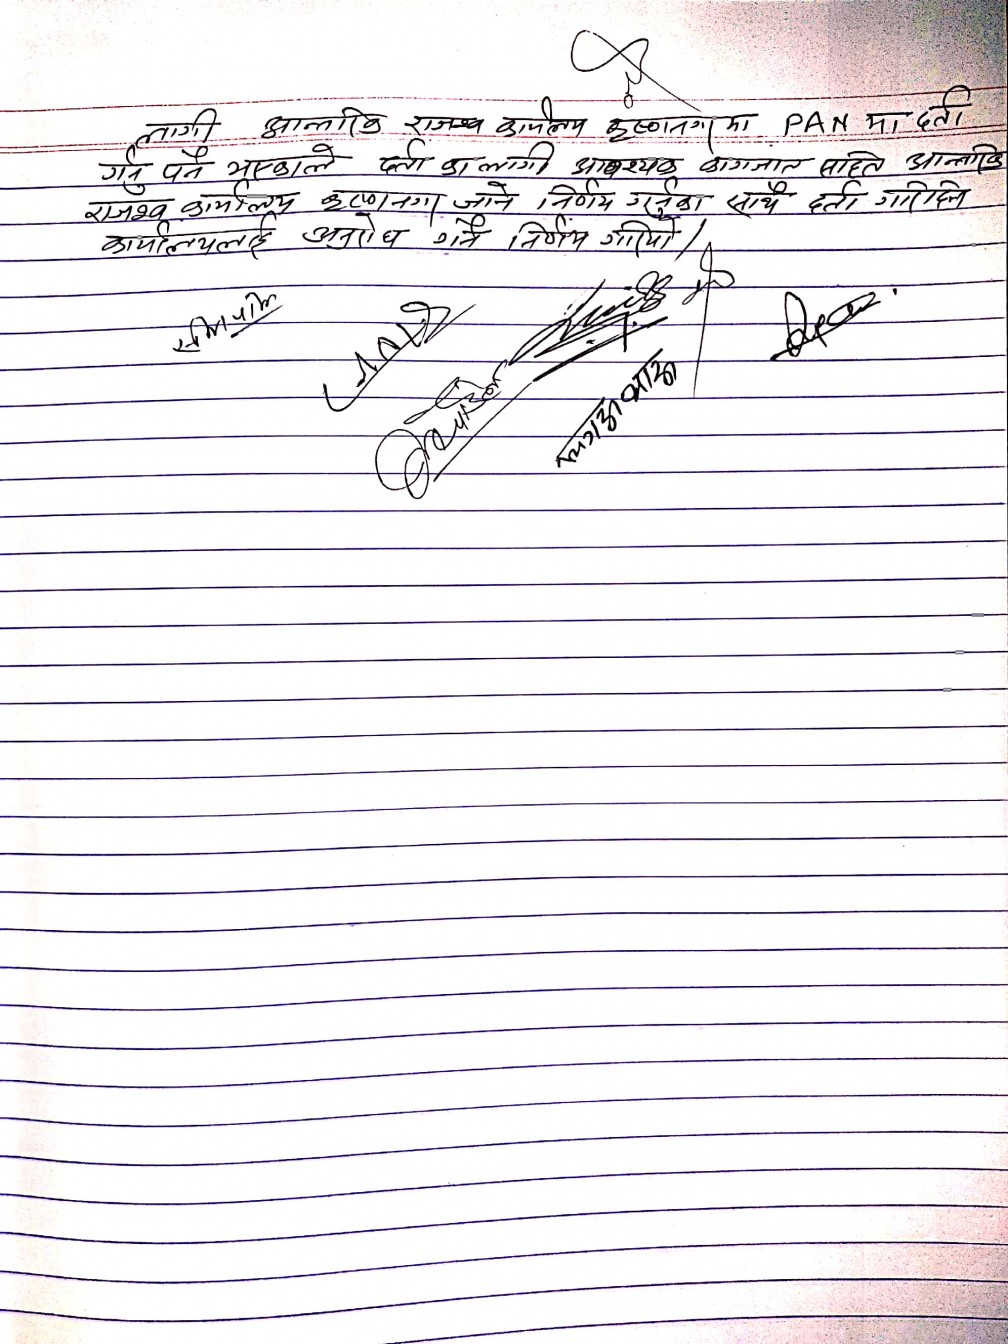 लागी आन्तरिक राजश्व कार्यालय कृष्णनगरमा PAN मा दर्ता
गर्नु पर्ने भएकाले दर्ता का लागी आवश्यक कागजात सहित आन्तरिक
राजश्व कार्यालय कृष्णनगर जाने निर्णय गर्नुका साथै दर्ता गरिदिन
कार्यालयलाई अनुरोध गर्ने निर्णय गरियो।